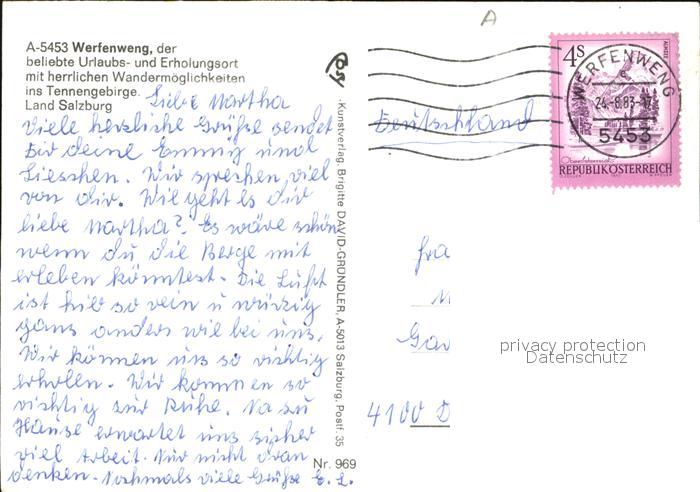 A
A-5453 Werfenweng, der
beliebte Urlaubs- und Erholungsort
mit herrlichen Wandermöglichkeiten
ins Tennengebirge.
Land Salzburg
Liebe Martha
Viele herzliche Grüße sendet
Dir deine Emmy und
Lieschen. Wir sprechen viel
von dir. Wie geht es dir
liebe Martha? Es wäre schön
wenn du die Berge mit
erleben könntest. Die Luft
ist hier so rein u würzig
ganz anders wie bei uns.
Wir können uns so richtig
erholen. Wir kommen so
richtig zur Ruhe. Na zu
Hause erwartet uns sicher
viel Arbeit. Nur nicht dran
denken. Nochmals viele Grüße E. L.
Nr. 969
Kunstverlag, Brigitte DAVID-GRUNDLER, A-5013 Salzburg, Postf. 35
4S
WERFENWENG
24.-8.83-17
5453
REPUBLIK ÖSTERREICH
Deutschland
Fra
M
Gar
4100 D
privacy protection
Datenschutz